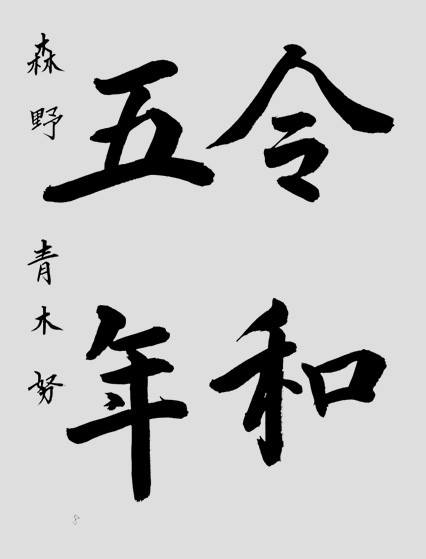 令和
五年
森野 青木努